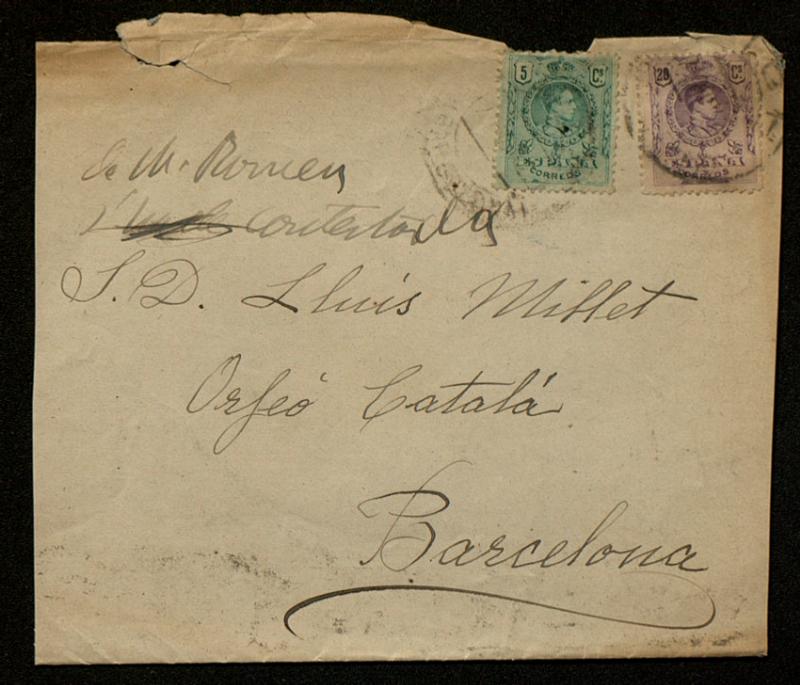 5 Cs
CORREOS
20 Cs
CORREOS
de M. Romeu
contestada
S. D. Lluís Millet
Orfeó Català
Barcelona